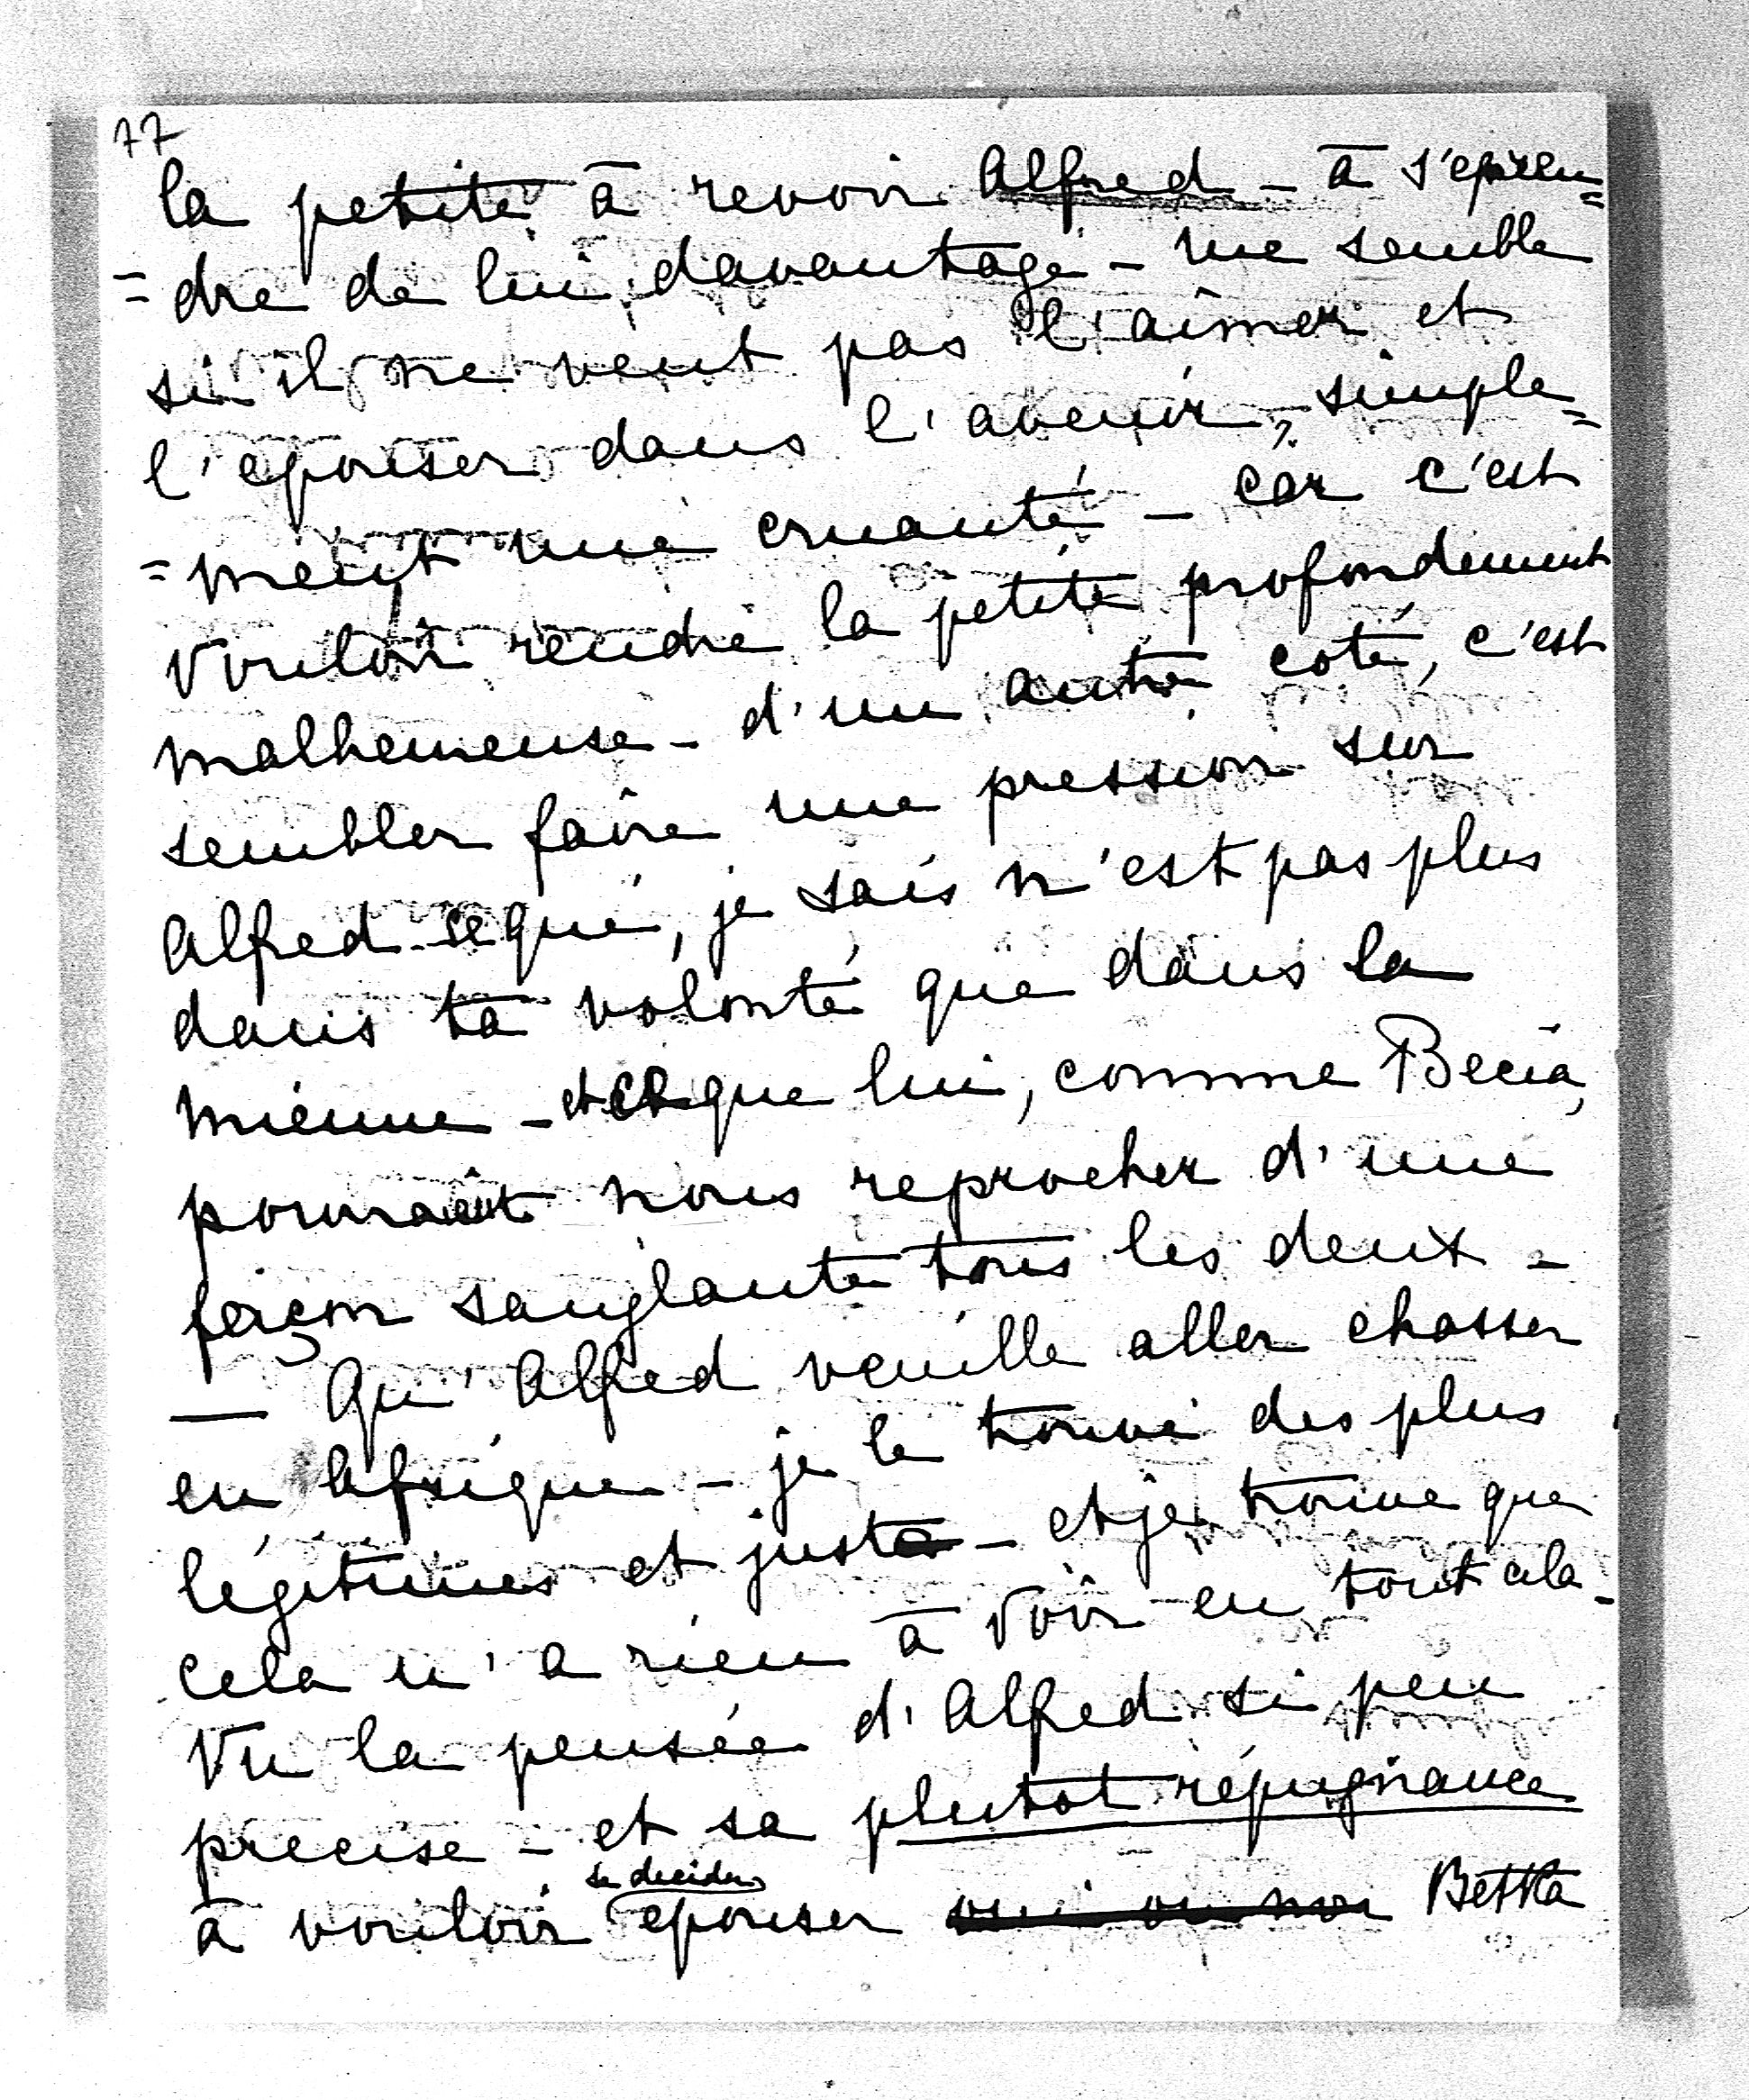 77
la petite à revoir Alfred - à s'epren=
=dre de lui davantage - me semble
si il ne veut pas l'aimer et
l'epouser dans l'avenir, simple=
=ment une cruauté - car c'est
vouloir rendre la petite profondement
malheureuse - d'un autre coté, c'est
sembler faire une pression sur
Alfred ce que, je sais n'est pas plus
dans ta volonté que dans la
mienne - et que lui, comme Becia,
pourrait nous reprocher d'une
façon sanglante tous les deux -
— Qu'Alfred veuille aller chasser
en Afrique - je le trouve des plus
légitimes et juste - et je trouve que
cela n'a rien à voir en tout cela -
Vu la pensée d'Alfred si peu
precise - et sa plutot répugnance
se decider
à vouloir epouser oui ou non Betka